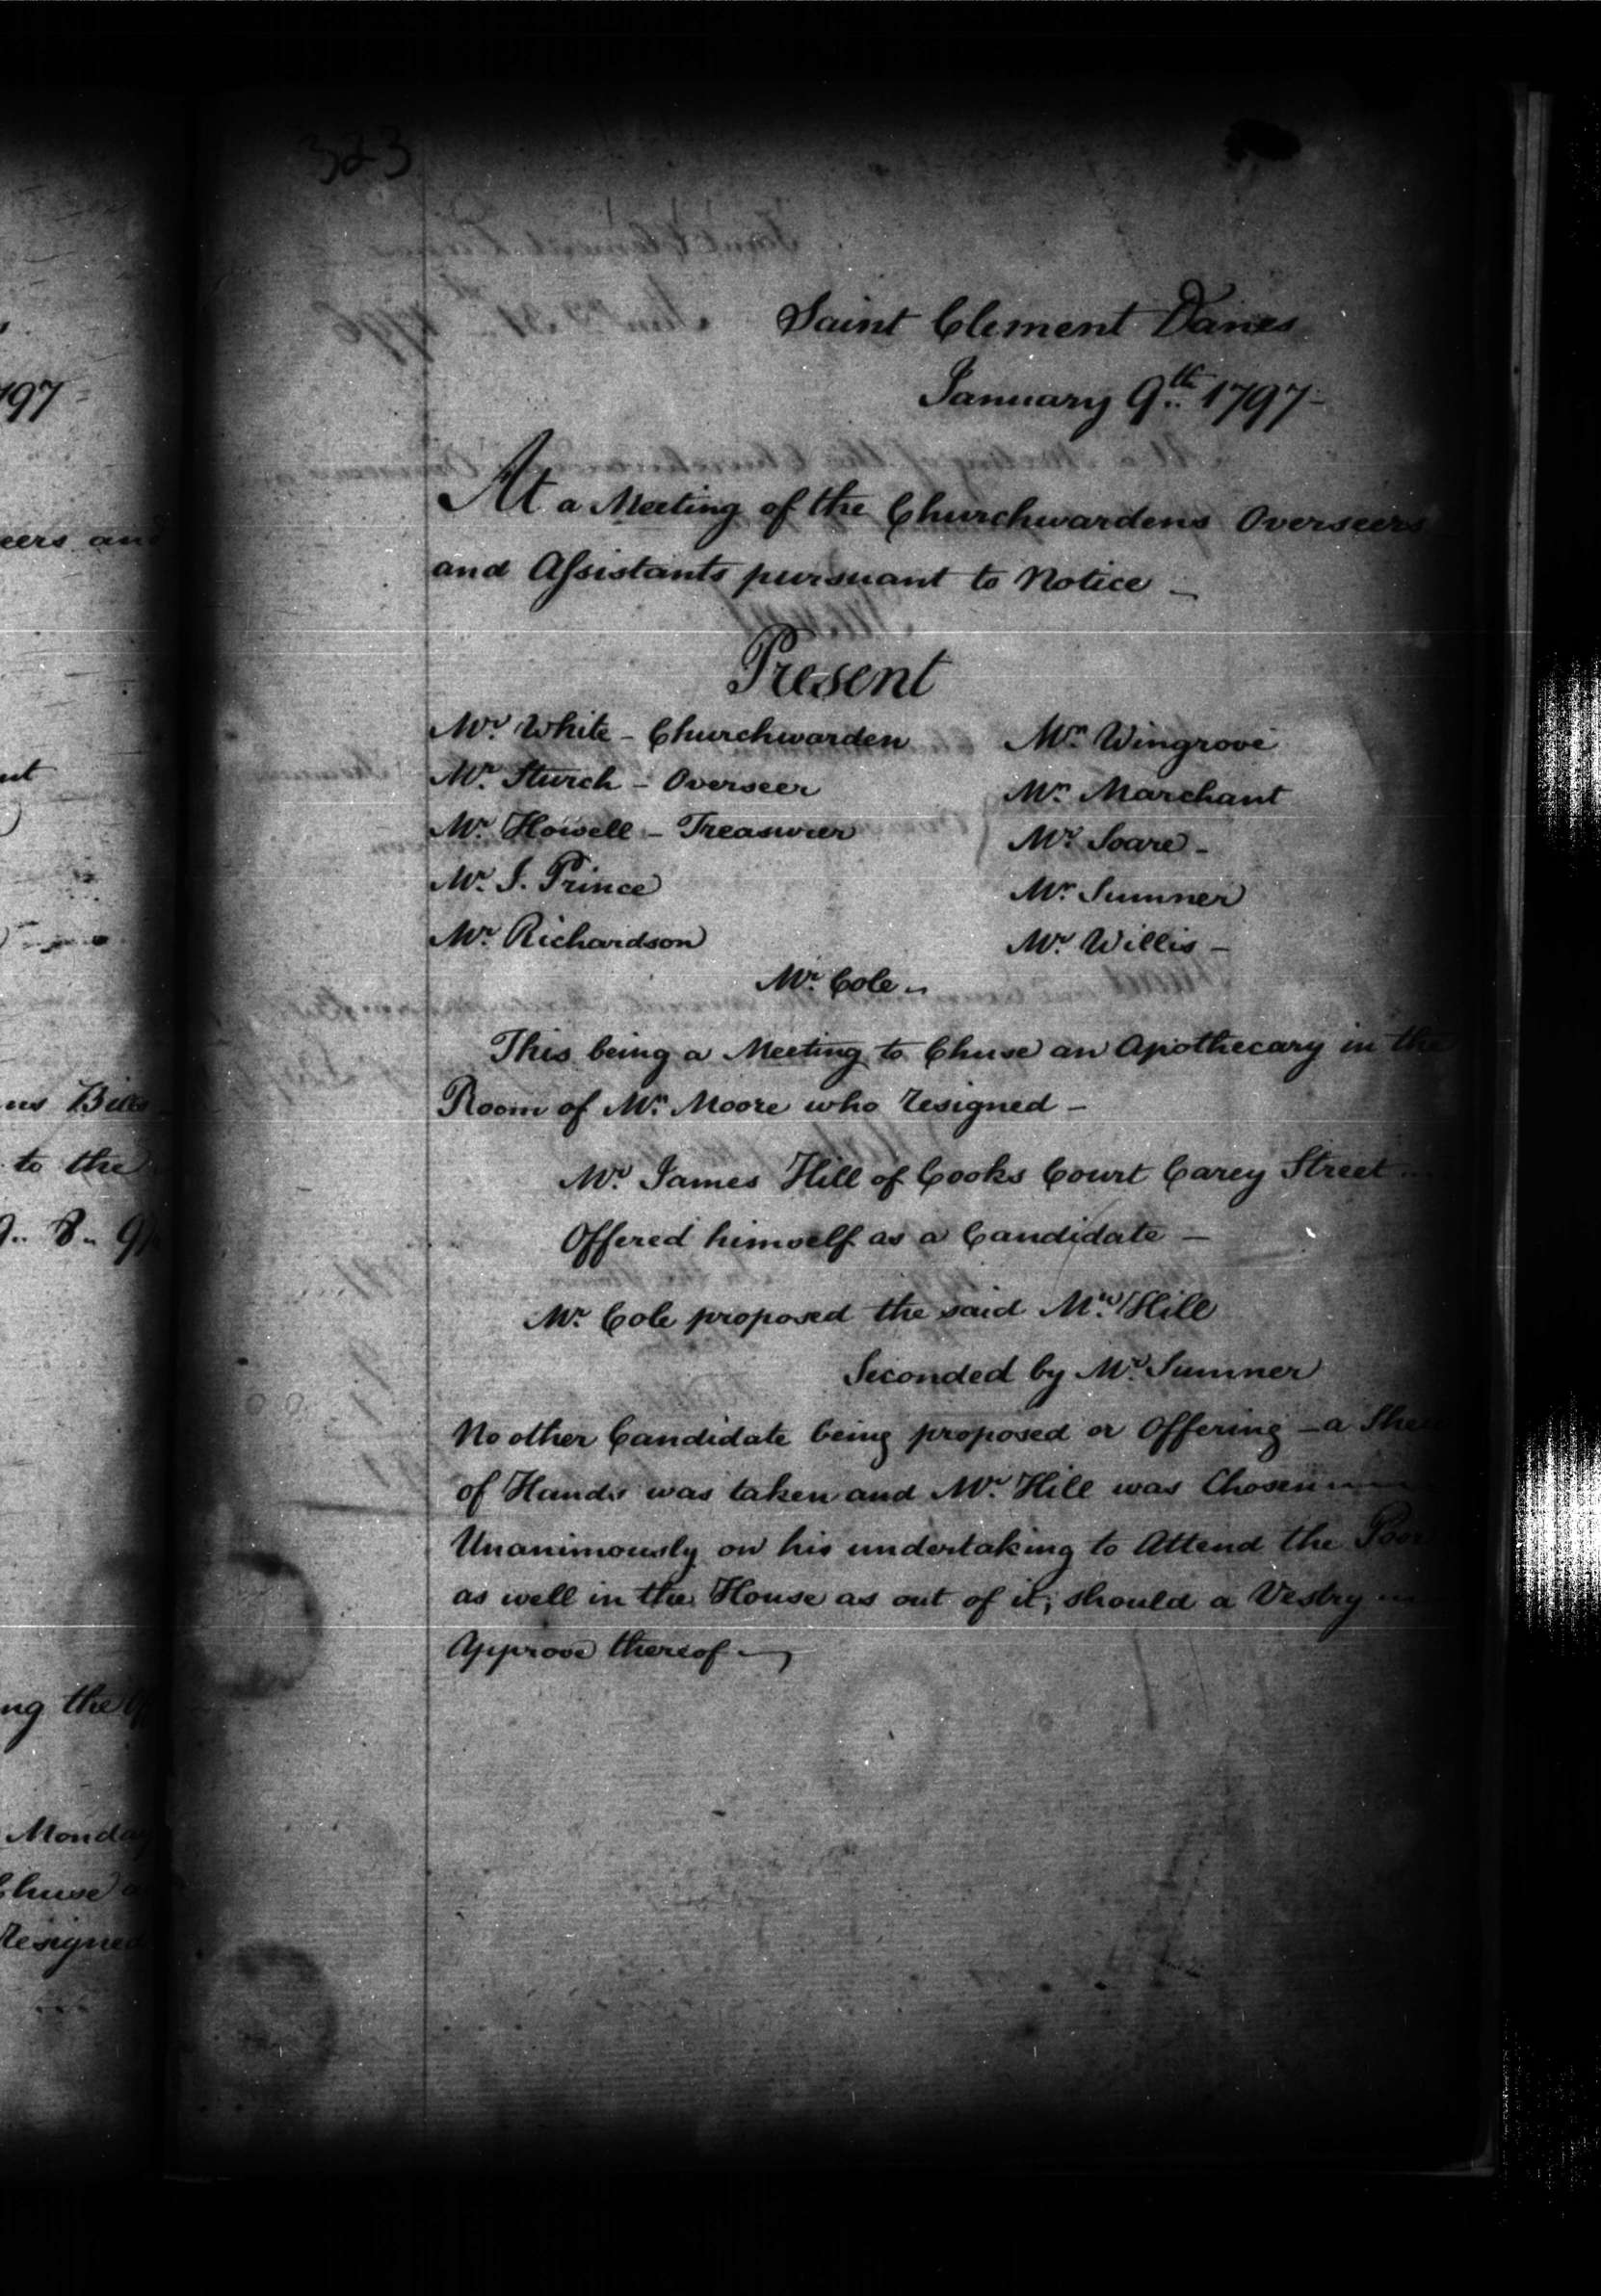 323
Saint Clement Danes
January 9th. 1797
At a Meeting of the Churchwardens Overseers
and Assistants pursuant to Notice
Present
Mr. White - Churchwarden
Mr. Sturch - Overseer
Mr. Howell - Treasurer
Mr. J. Prince
Mr. Richardson
Mr. Wingrove
Mr. Marchant
Mr. Soare
Mr. Sumner
Mr. Willis
Mr. Cole
This being a Meeting to Chuse an Apothecary in the
Room of Mr. Moore who resigned -
Mr. James Hill of Cooks Court Carey Street
Offered himself as a Candidate -
Mr. Cole proposed the said Mr. Hill
Seconded by Mr. Sumner
No other Candidate being proposed or Offering - a
of Hands was taken and Mr. Hill was Chosen
Unanimously on his undertaking to Attend the Poor
as well in the House as out of it, should a Vestry
Approve thereof
97
eers and
Bills
to the
9.. 8.. 9
ng the
Monday
Chuse
Resigned